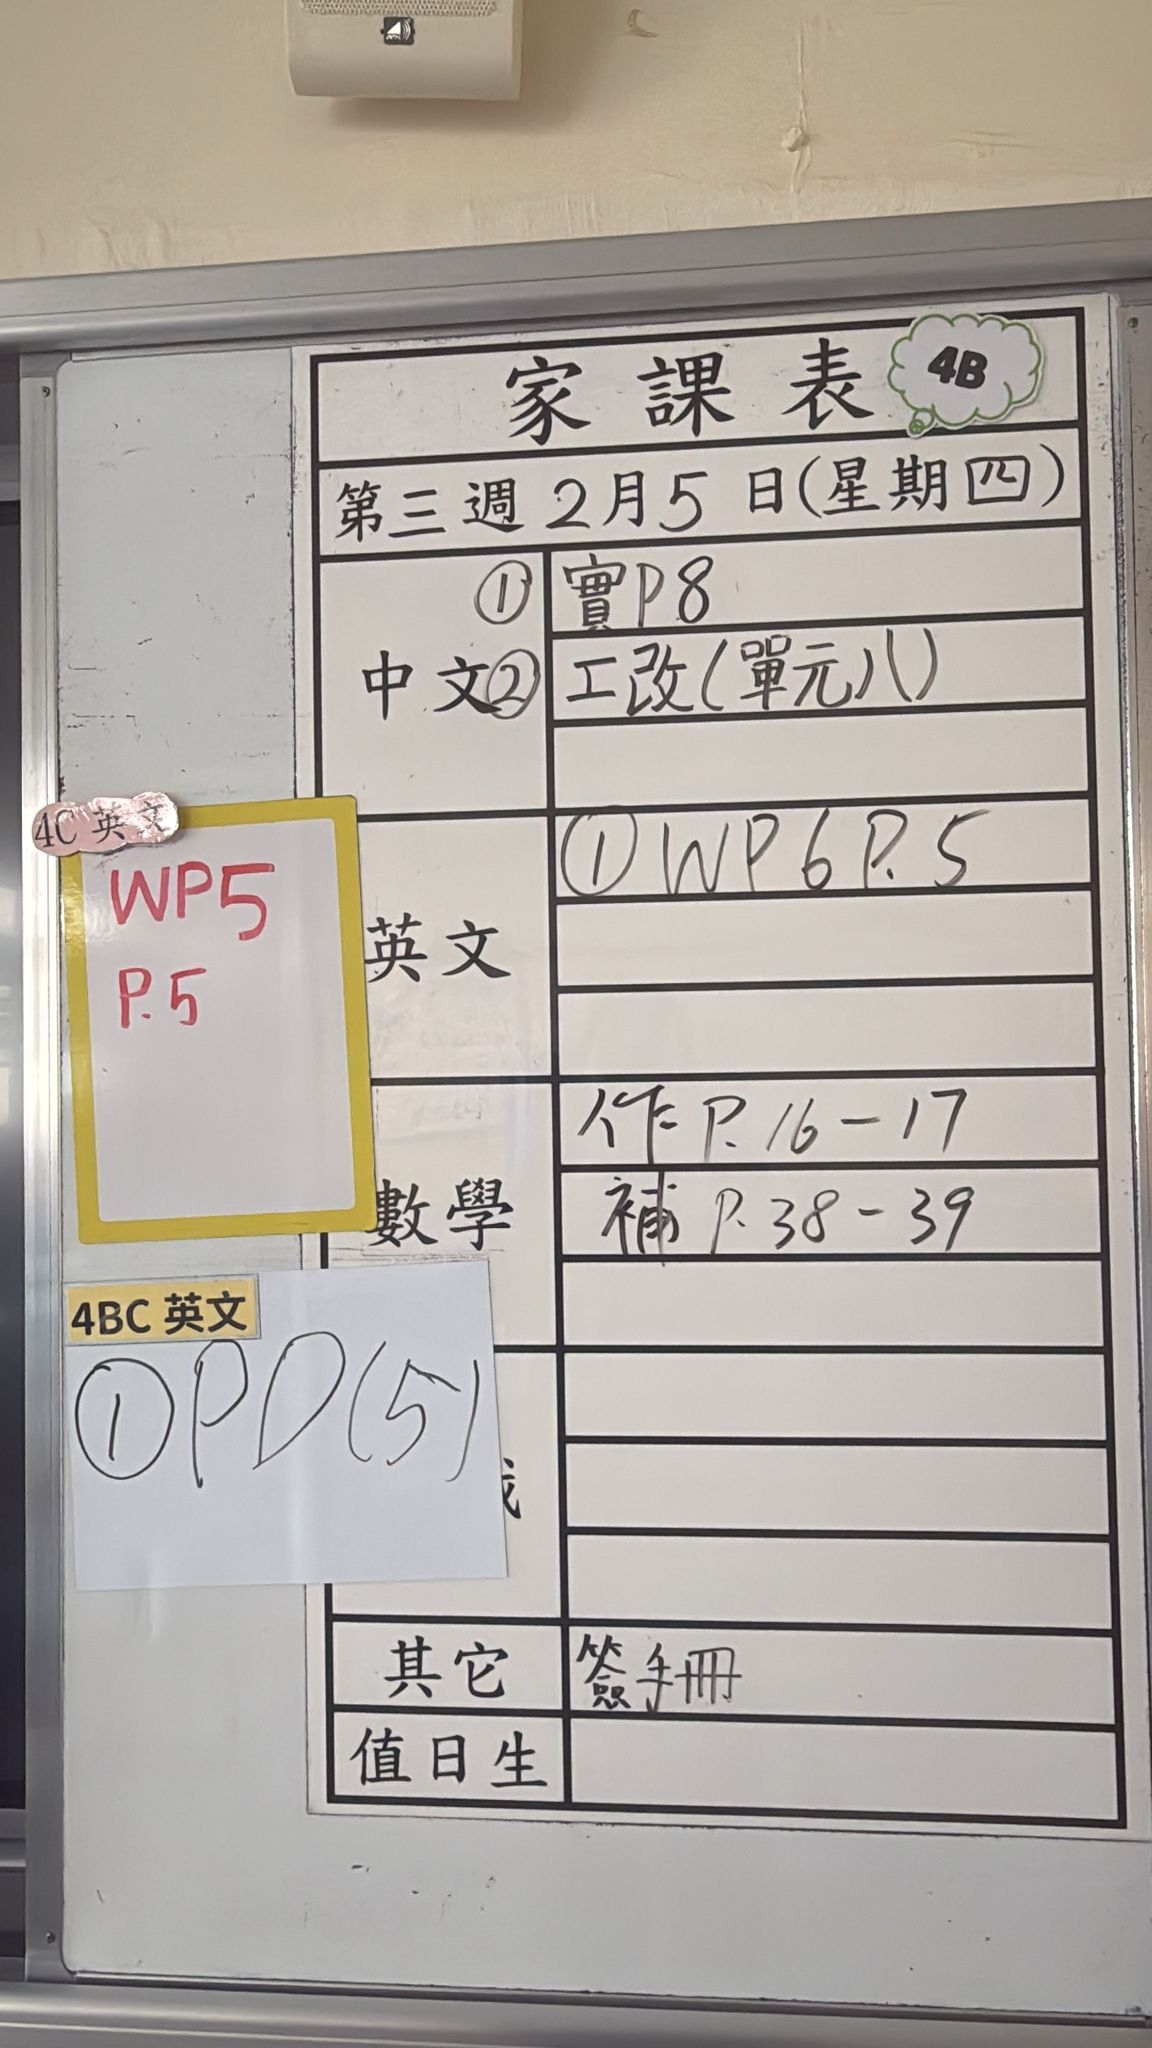 家課表 4B
第三週 2月5日(星期四)
中文
① 實P8
② 工改(單元八)
英文
① WP6 P.5
數學
作 P.16-17
補 P.38-39
其它 簽手冊
值日生
4C 英文
WP5
P.5
4BC 英文
① PD(5)